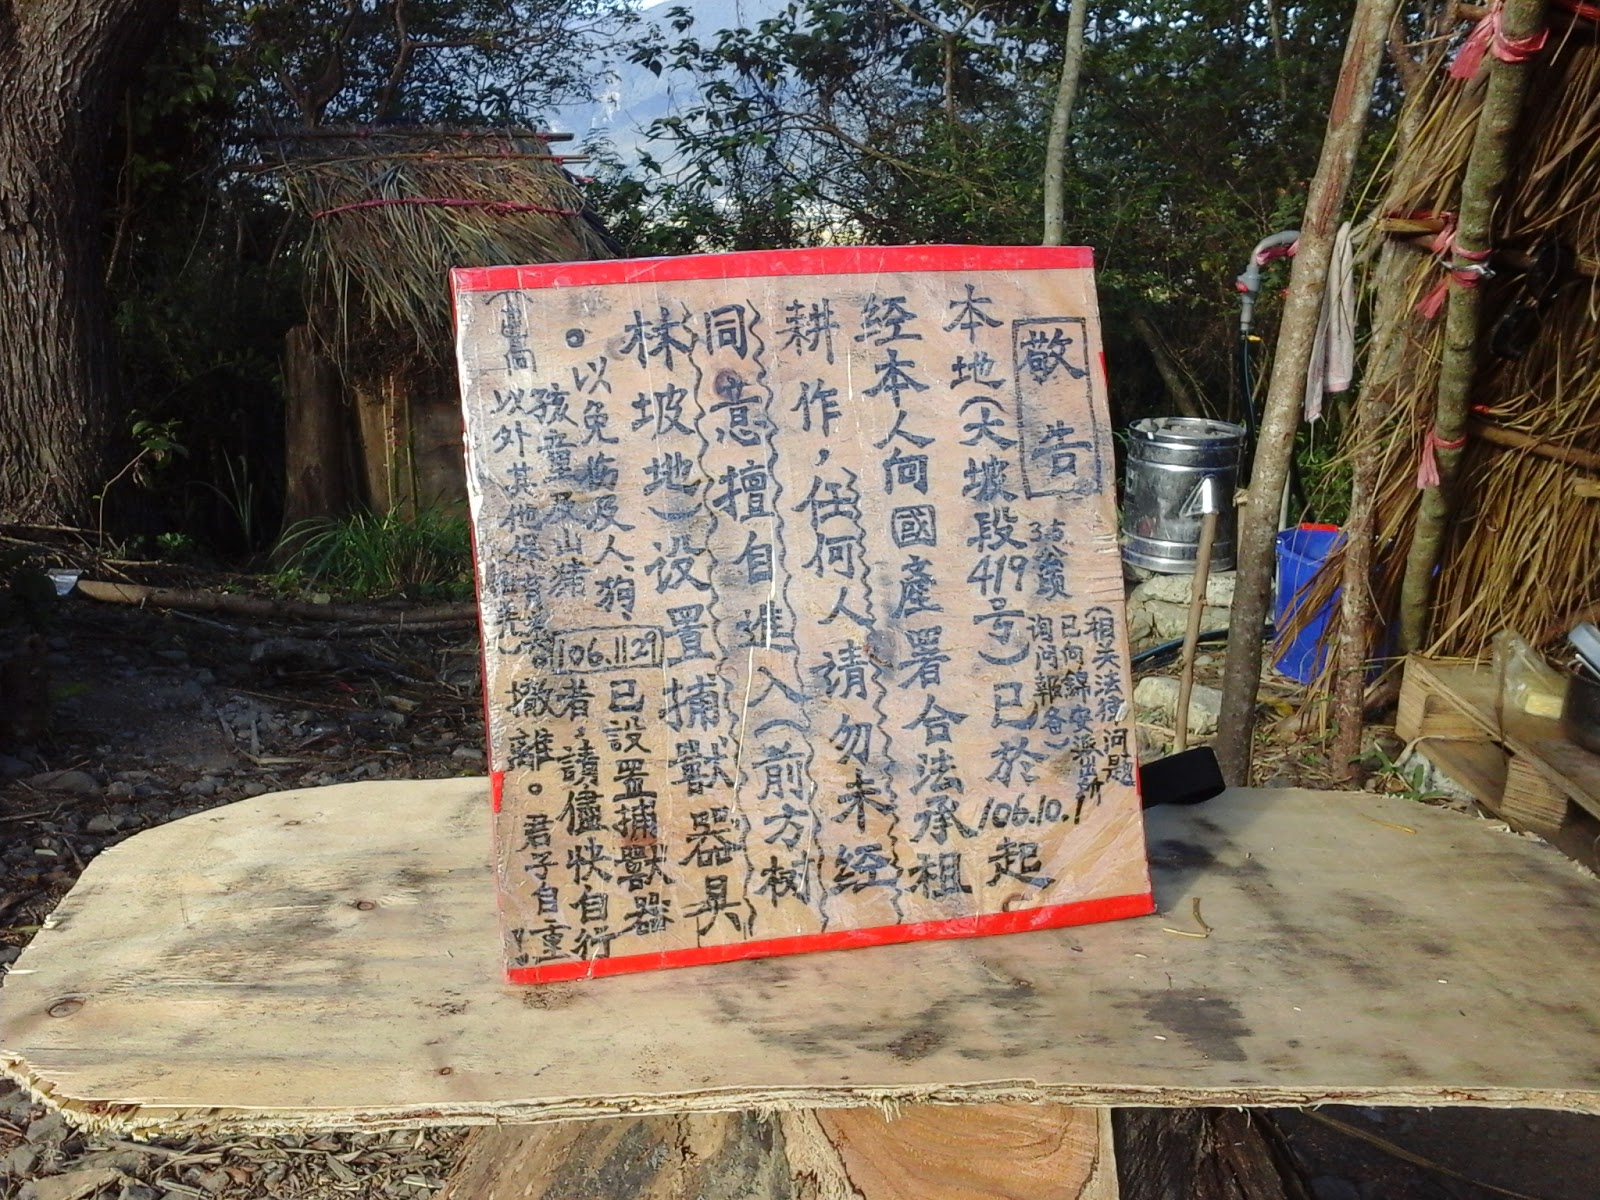 敬告
公頃
(相关法律问題
已向錦安派出所
询问報备)
本地(大坡段419号)已於106.10.1起
经本人向國產署合法承租
耕作,任何人请勿未经
同意擅自進入(前方树
林坡地)设置捕獸器具
。以免伤及人、狗、
孩童及山猪
以外其他保育类
106.11.29
已設置捕獸器
者,請儘快自行
撤離。君子自重!!